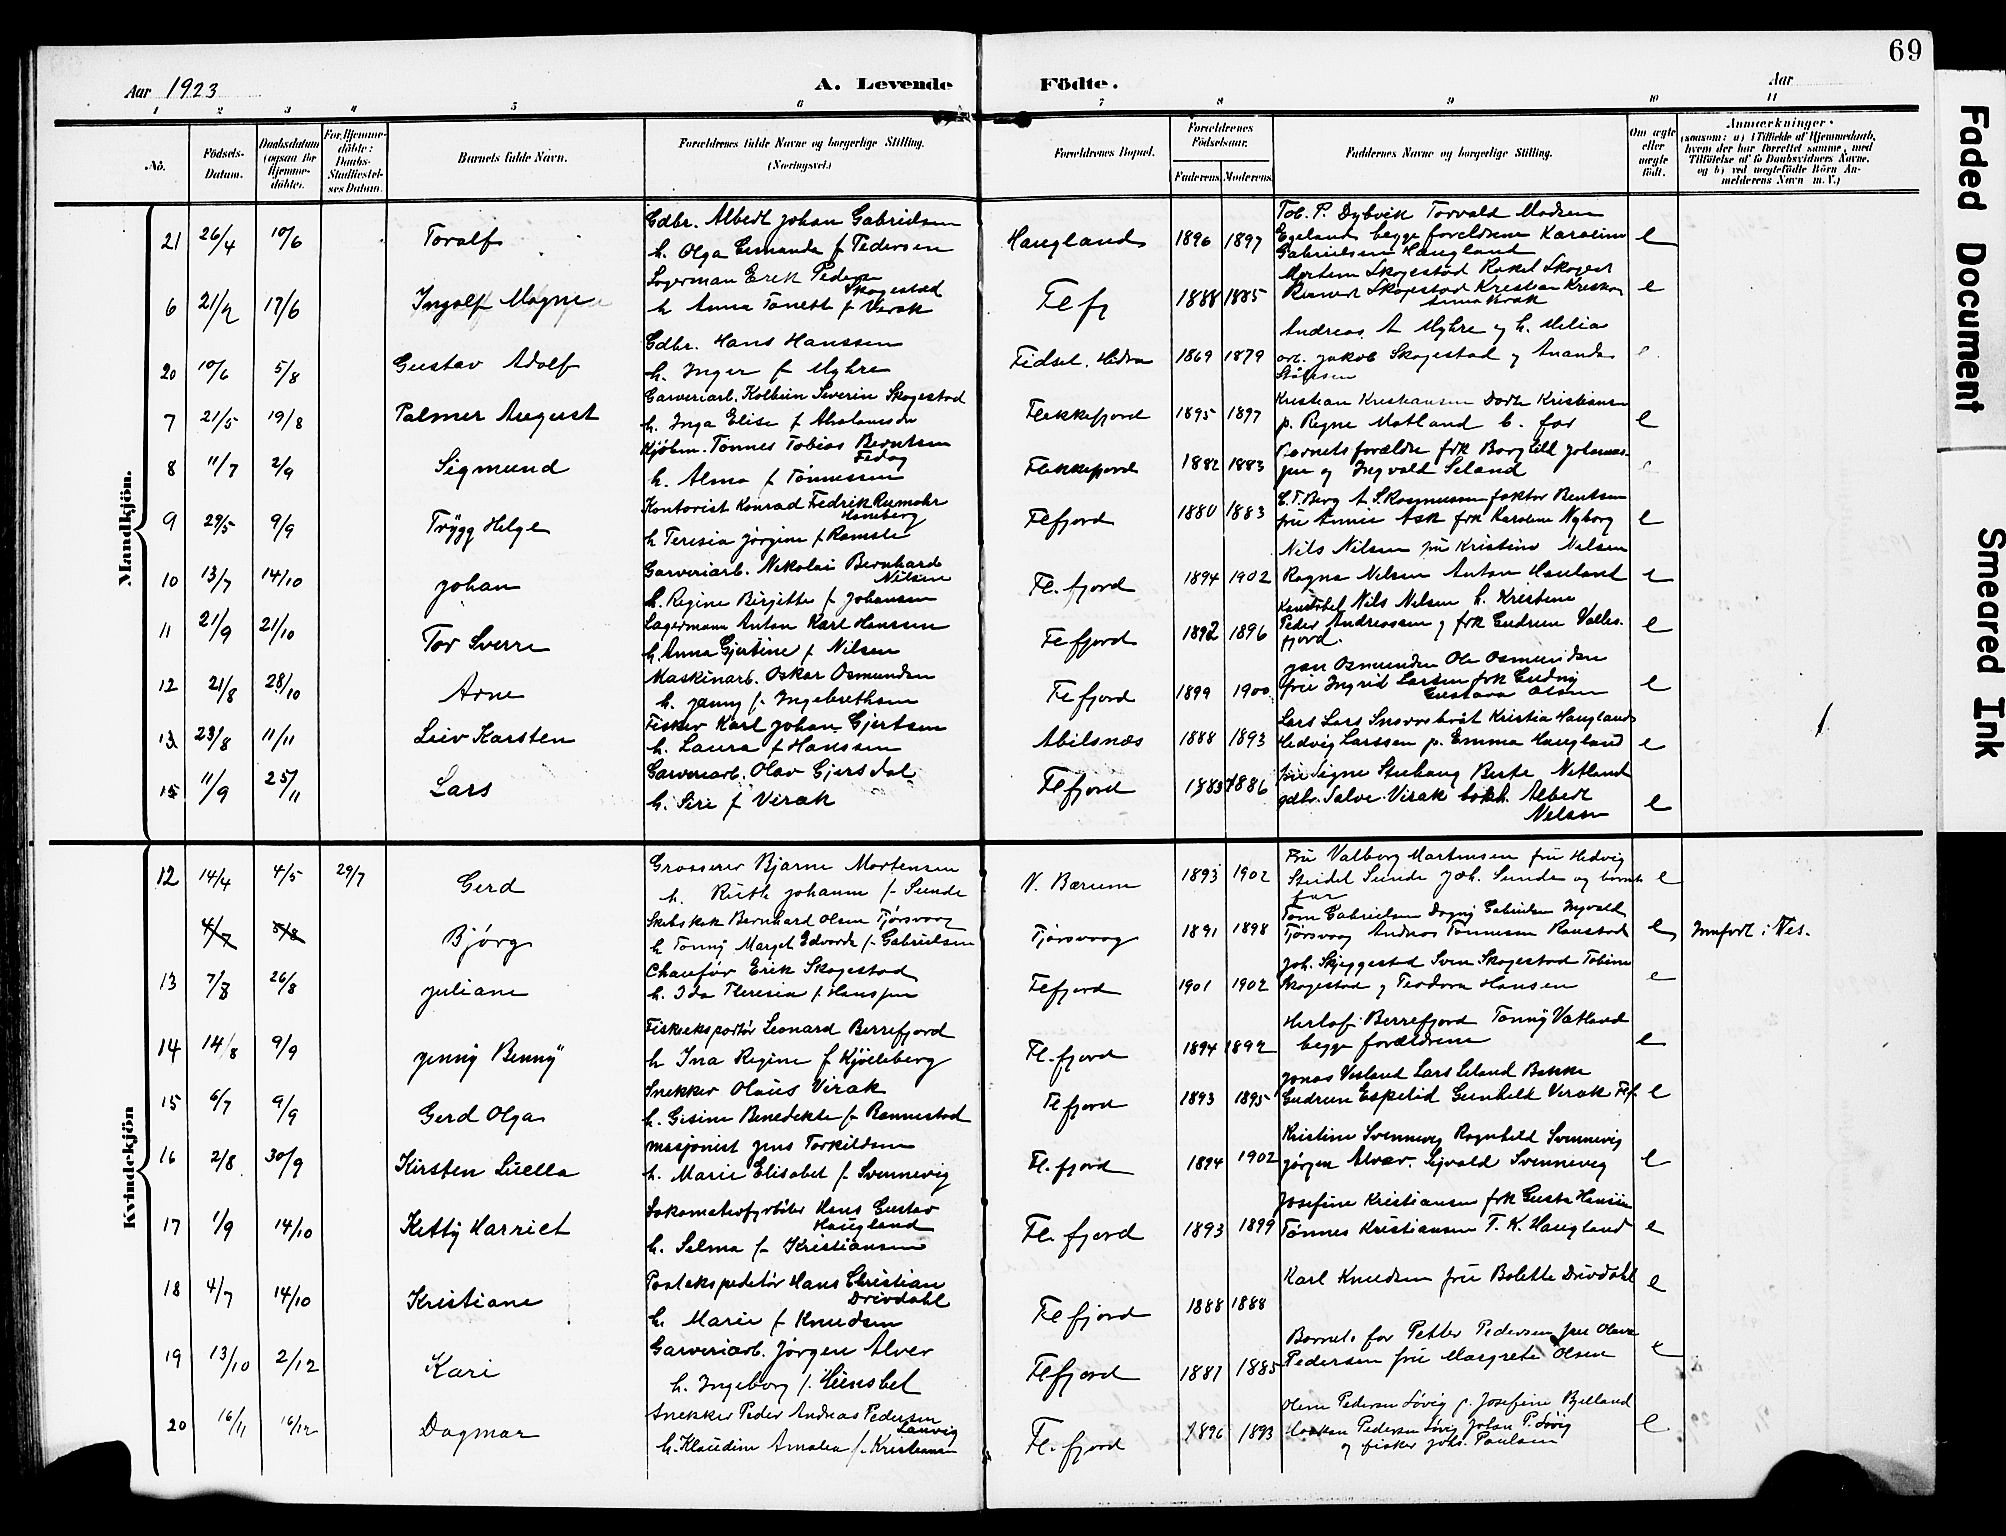 69
Aar 1923
A. Levende Födte.
Aar
1 2 3 4 5 6 7 8 9 10 11
No.
Födsels-Datum.
Daabsdatum (ogsaa for Hjemmedöbte).
For Hjemmedöbte: Daabs-Stadfæstelses Datum.
Barnets fulde Navn.
Forældrenes fulde Navne og borgerlige Stilling. (Næringsvei.)
Forældrenes Bopæl.
Forældrenes Födselsaar.
Faderens Moderens
Faddernes Navne og borgerlige Stilling.
Om ægte eller uægte födt.
Anmærkninger
Mandkjön.
21 26/4 10/6 Toralf
Gdbr. Albert Johan Gabrielsen
h. Olga f Pedersen
Haugland 1896 1897
Tob. P. Dybvik Torvald Madsen
Egeland begge foreldrene Karoline
Gabrielsen Haugland
e
6 17/6 Ingolf Magne
Lagerman Erik Peder Skogestad
h Anna Tonette f Virak
Flefj 1888 1885
e
20 10/6 5/8 Gustav Adolf
Gdbr. Hans Hanssen
h. Inger f Myhre
Fidsel. Hidra 1869 1879
Andreas A Myhre og h. Milia
arb. Jakob Skogestad og Ananda
7 21/5 19/8 Palmer August
Garveriarb. Kolbein Severin Skogestad
h. Inga Elise f Abrahamsen
Flekkefjord 1895 1897
Kristian Kristiansen Dorte Kristiansen
p. Regne Matland b. far
e
8 11/7 2/9 Sigmund
Kjöbm. Tönnes Tobias Berntsen Fedog
h. Alma f Tönnessen
Flekkefjord 1882 1883
Barnets forældre frk Borghild Johannes-
sen og Ingvald Seland
9 29/5 9/9 Trygg Helge
Kontorist Konrad Fredrik Rumohr Haneborg
h Teresia Jörgine f Ramslie
Flefjord 1880 1883
fru Annie Ask frk Karoline Nyborg
e
10 13/7 14/10 Johan
Garveriarb. Nikolai Bernhard Nilsen
h. Regine Birgitte f Johansen
Fl. fjord 1894 1902
Nils Nilsen fru Kristine Nilsen
Ragna Nilsen Anton Hauland
e
11 21/9 21/10 Tor Sverre
Lagermann Anton Karl Hansen
h. Anna Gjertine f Nilsen
Flefjord 1892 1896
Nils Nilsen h. Kristine
Peder Andreassen og frk Gudrun Valles-
fjord.
e
12 21/8 28/10 Arne
Maskinarb. Oskar Osmundsen
h. Jenny f. Ingebrethsen
Flefjord 1899 1900
Jan Osmundsen Ole Osmundsen
fru Ingrid Larsen frk Gudny
Gustava Olsen
e
13 23/8 11/11 Leiv Karsten
Fisker Karl Johan Gjertsen
h. Laura f Hanssen
Abelsnæs 1888 1893
Hedvig Larssen p. Emma Haugland
e
15 11/9 25/11 Lars
Garveriarb. Olav Gjersdal
h. Siri f Virak
Flefjord 1883 1886
fru Signe Stuhaug Berte Netland
gdbr. Salve Virak bokh. Albert
Nilsen
e
Kvindekjön
12 14/4 4/5 29/7 Gerd
Grosserer Bjarne Mortensen
h. Ruth Johanne f. Sunde
V. Bærum 1893 1902
Fru Valborg Martensen fru Hedvig
Steidel Sunde Joh. Sunde og barnets
far
e
4/7 5/8 Bjørg
Bernhard Olsen Tjörsvaag
h Tonny Marget Edvarda f. Gabrielsen
Tjörsvaag 1891 1898
Tom Gabrielsen Dagny Gabrielsen Ingvald
Tjörsvaag Andreas Tönnesen Raustad
e Innfört i Nes.
13 7/8 26/8 Juliane
Chauför Erik Skogestad
h. Ida Theresia f. Hanssen
Flefjord 1901 1902
Joh. Skjeggestad Sven Skogestad Tobine
Skogestad og Teodora Hansen
e
14 14/8 9/9 Jenny Benny
Fiskeeksportör Leonard Berrefjord
h Ina Regine f Kjölleberg
Fl. fjord 1894 1892
Herlof Berrefjord Tonny Vatland
begge forældrene
e
15 6/7 9/9 Gerd Olga
Snekker Olaus Virak
h. Gisine Benedikte f. Rannestad
Flefjord 1893 1895
Jonas Vasland Lars Leland Bakke
Gudrun Espelid Gunhild Virak Flf.
e
16 2/8 30/9 Kirsten Luella
Jens Torkildsen
h. Marie Elisabet f. Svennevig
Fl. fjord 1894 1902
Kristine Svennevig Ragnhild Svennevig
Jörgen Alvær. Sigvald Svennevig
e
17 1/9 14/10 Ketty Harriet
Lokomotivfyrböter Hans Gustav Haugland
h. Selma f. Kristiansen
Fl. fjord 1893 1899
Josefine Kristiansen frk Gusta Hansen
Tönnes Kristiansen T. K. Haugland
e
18 4/7 14/10 Kristiane
Postekspeditör Hans Christian Drivdahl
h. Marie f Knudsen
Flefjord 1888 1888
Karl Knudsen fru Bolette Drivdahl
e
19 13/10 2/12 Kari
Garveriarb. Jörgen Alver
h. Ingeborg f. Hunsbet
Flefjord 1881 1885
Barnets far Petter Pedersen fru Olava
Pedersen fru Margrete Olsen
e
20 16/11 16/12 Dagmar
Snekker Peder Andreas Pedersen Launig
h. Klaudine Amalia f. Kristiansen
Fl. fjord 1896 1893
Oline Pedersen Lövig p. Josefine Bjelland
Haakon Pedersen Lövig Johan P. Lövig
og fisker Johs. Paulsen
e
Faded Document
Smeared Ink